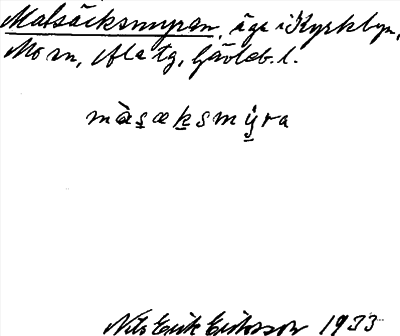 Matsäcksmyran, äga i Kyrkbyn,
Mo sn, Ala tg, Gävleb. l.
màs̱æḵsmy̱ra
Nils Erik Eriksson 1933